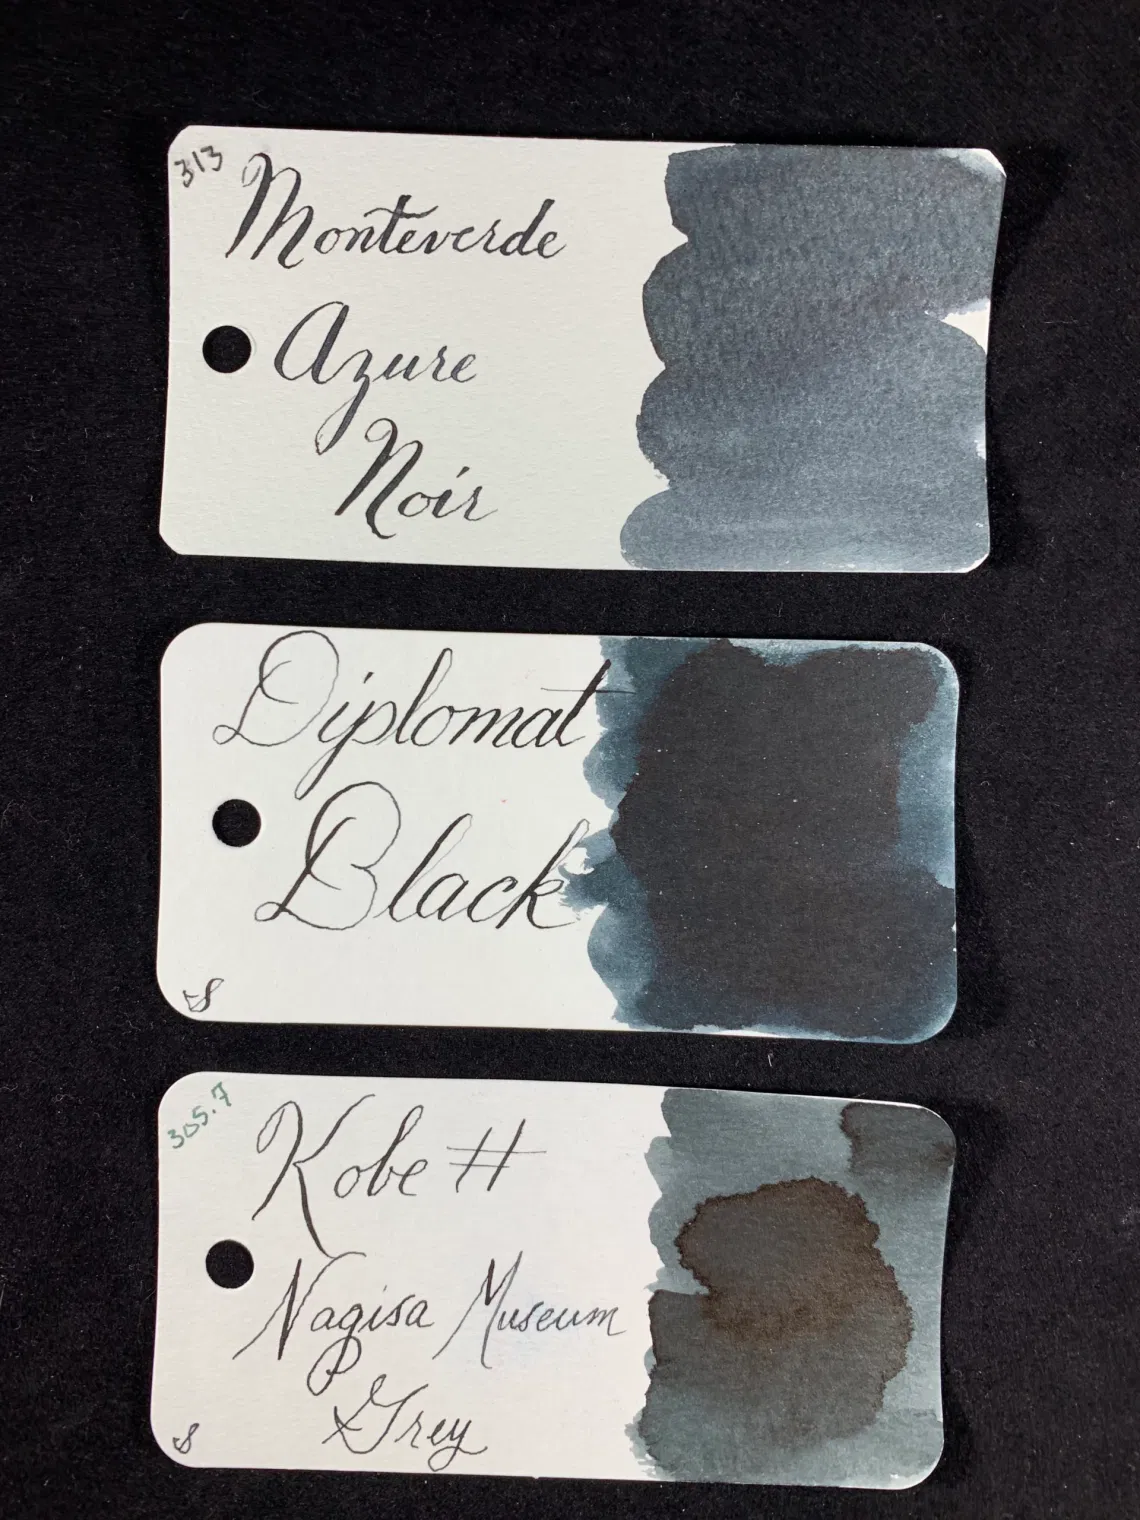 313
Monteverde
Azure
Noir
Diplomat
Black
305.7
Kobe #
Nagisa Museum
Grey